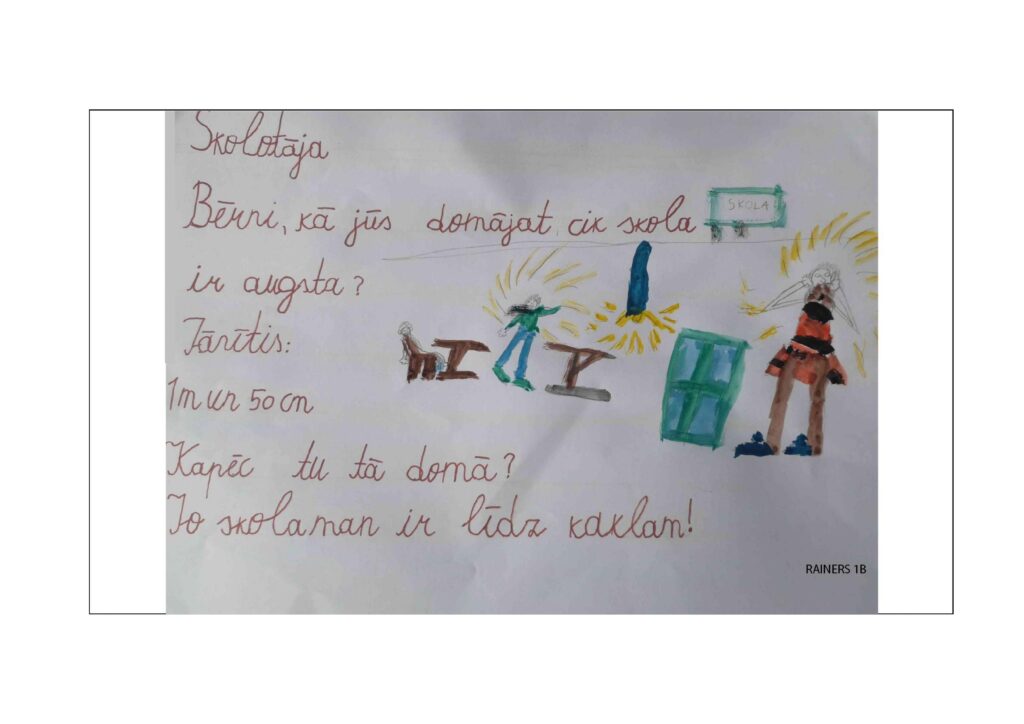 Skolotāja
Bērni, kā jūs domājat, cik skola
SKOLA
ir augsta?
Jānītis:
1m un 50 cm
Kāpēc tu tā domā?
Jo skola man ir līdz kaklam!
RAINERS 1B